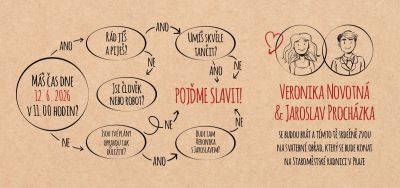 MÁŠ ČAS DNE
12. 6. 2026
V 11.00 HODIN?
ANO
NE
RÁD JÍŠ
A PIJEŠ?
ANO
NE
UMÍŠ SKVĚLE
TANČIT?
ANO
NE
JSI ČLOVĚK
NEBO ROBOT?
POJĎME SLAVIT!
JSOU TVÉ PLÁNY
OPRAVDU TAK
DŮLEŽITÉ?
ANO
NE
BUDE TAM
VERONIKA
S JAROSLAVEM?
NE
VERONIKA NOVOTNÁ
& JAROSLAV PROCHÁZKA
SE BUDOU BRÁT A TÍMTO TĚ SRDEČNĚ ZVOU
NA SVATEBNÍ OBŘAD, KTERÝ SE BUDE KONAT
NA STAROMĚSTSKÉ RADNICI V PRAZE